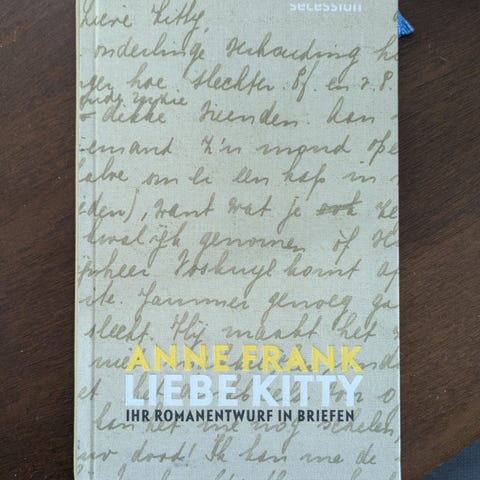 secession
Lieve Kitty,
onderlinge verhouding h
hoe slechter. Pf. en v. P.
dikke vrienden. Aan
iemand z'n mond ope
alve om er een hap in
den), want wat je ook
kwalijk genomen of
ijnheer Voskuyl komt op
te. Jammer genoeg ga
slecht. Hij maakt het
ANNE FRANK
LIEBE KITTY
IHR ROMANENTWURF IN BRIEFEN
kan het me nog schelen,
uw dood! Ik kan me de